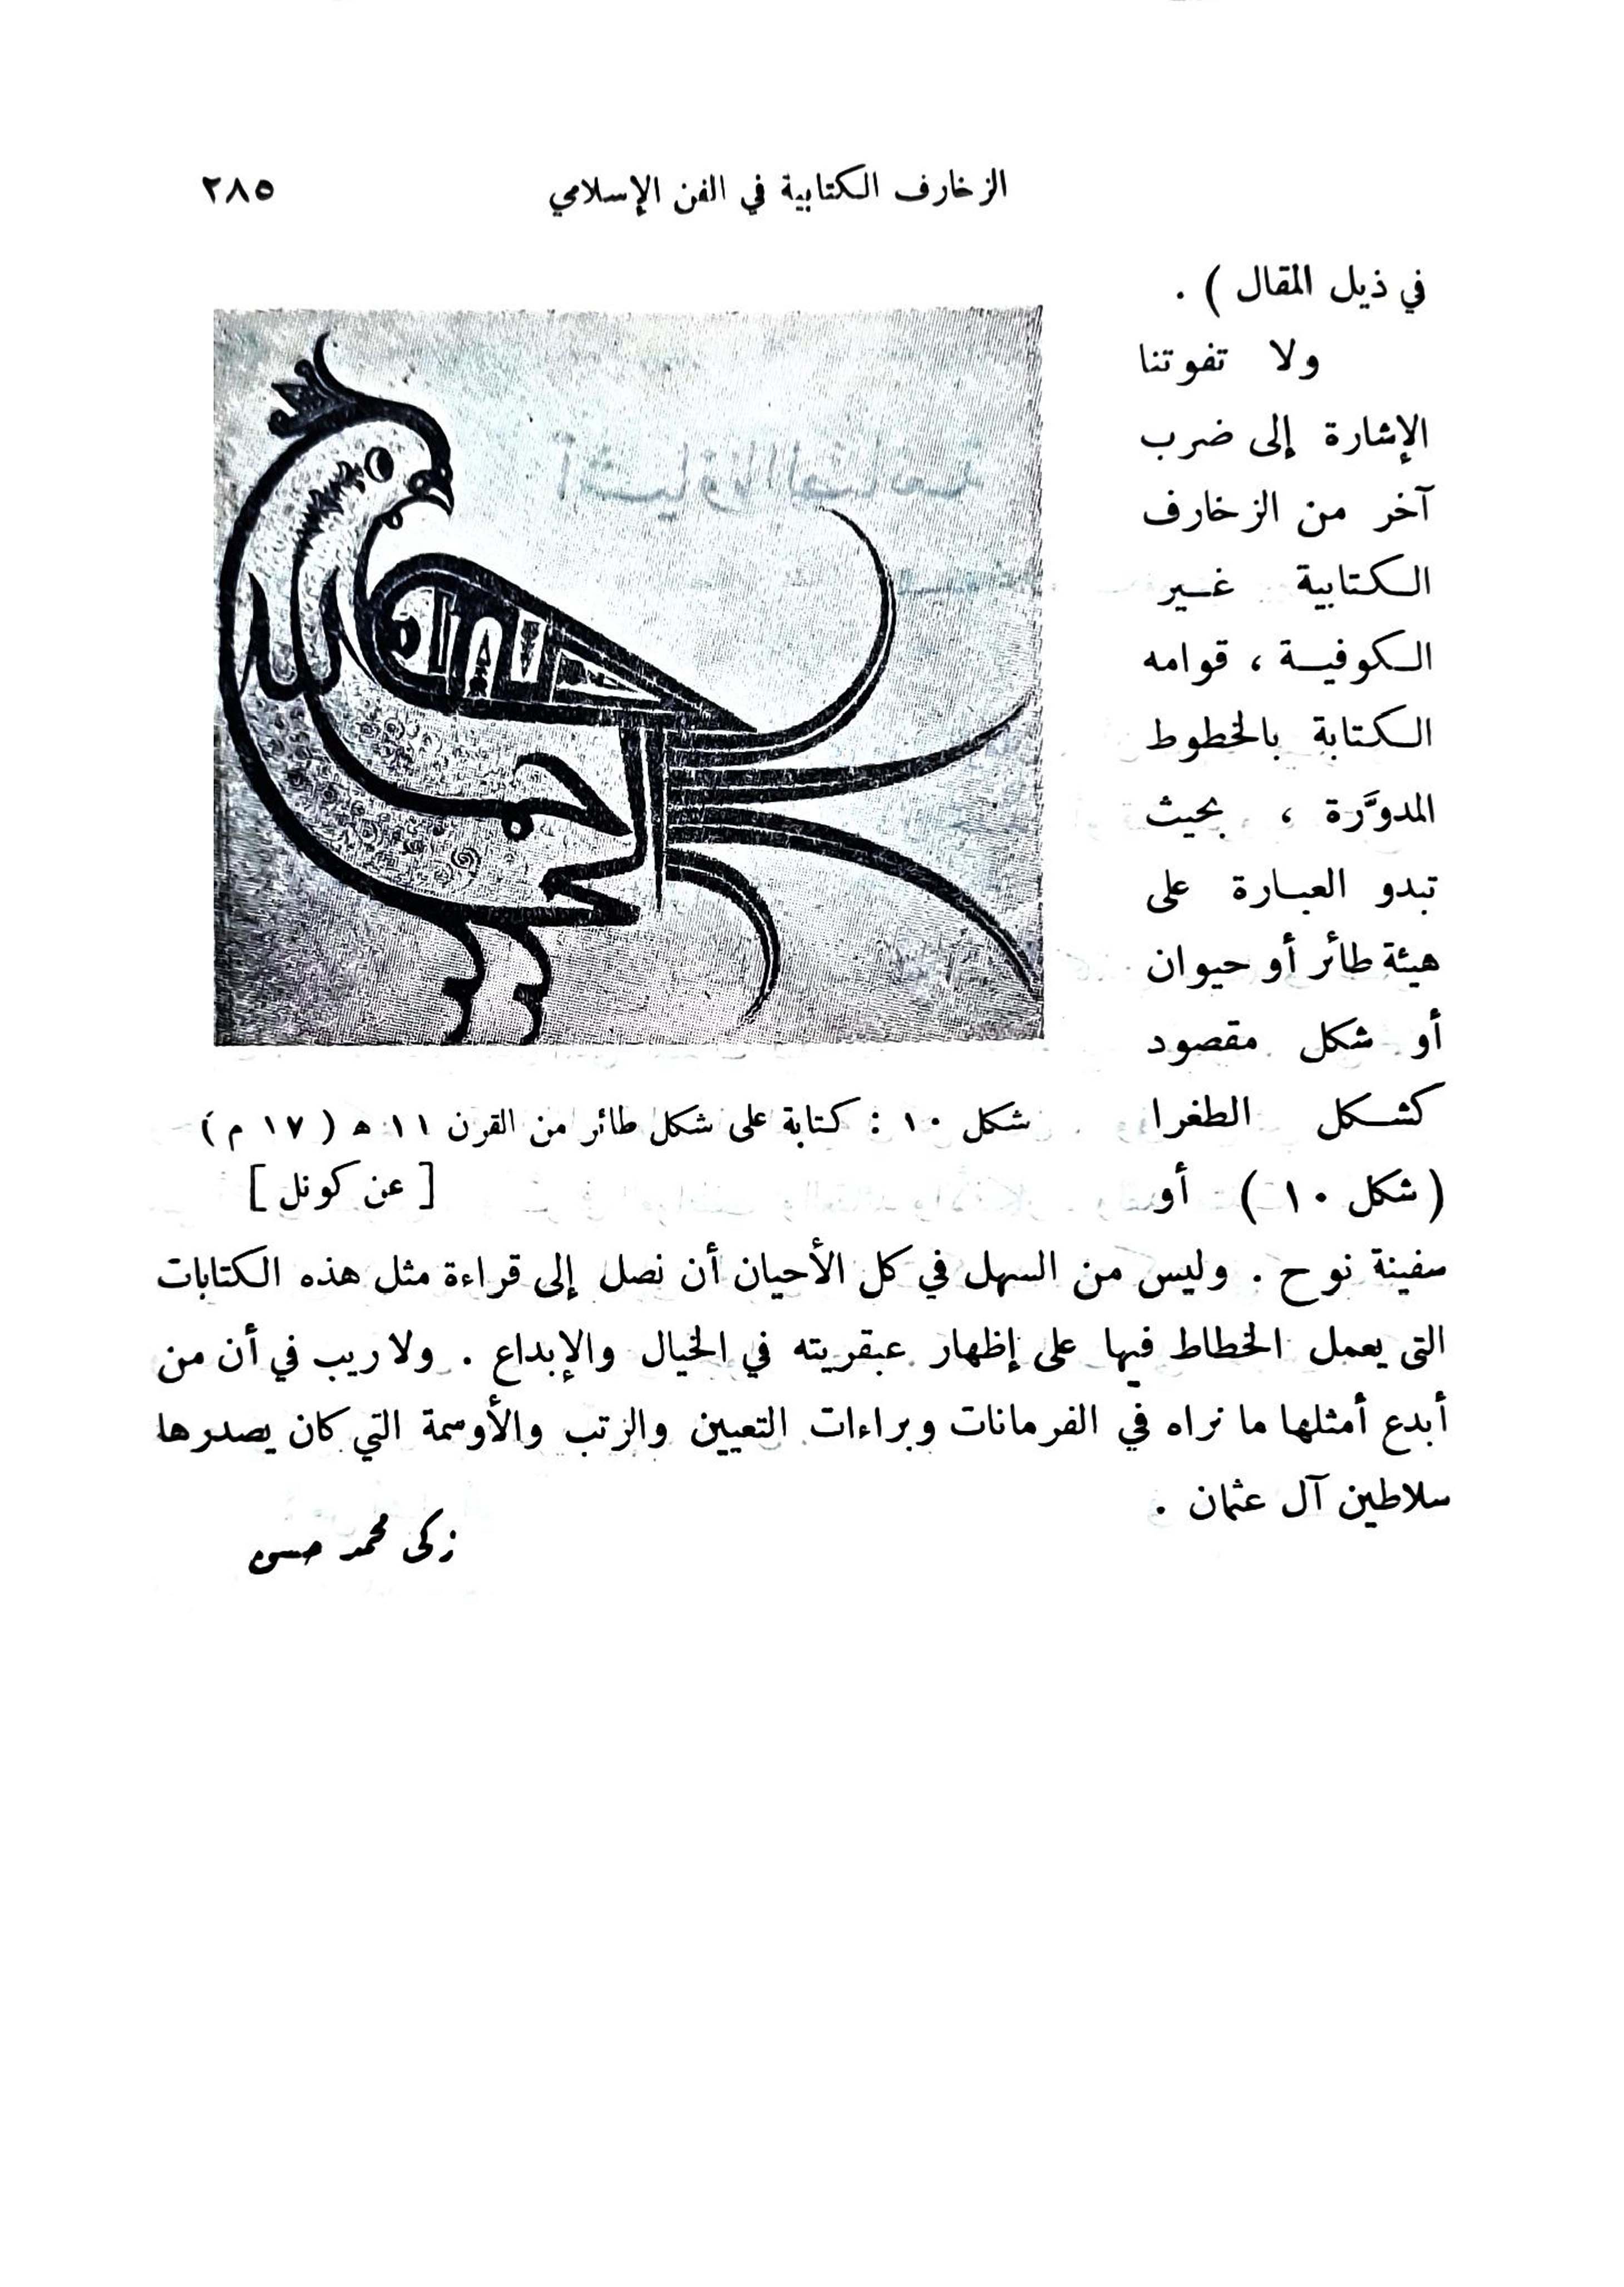 الزخارف الكتابية في الفن الإسلامي ٢٨٥
في ذيل المقال ) .
ولا تفوتنا
الإشارة إلى ضرب
آخر من الزخارف
الكتابية غير
الكوفية ، قوامه
الكتابة بالخطوط
المدوَّرة ، بحيث
تبدو العبارة على
هيئة طائر أو حيوان
أو شكل مقصود
كشكل الطغرا
( شكل ١٠ ) أو
شكل ١٠ : كتابة على شكل طائر من القرن ١١ ه ( ١٧ م )
[ عن كونل ]
سفينة نوح . وليس من السهل في كل الأحيان أن نصل إلى قراءة مثل هذه الكتابات
التى يعمل الخطاط فيها على إظهار عبقريته في الخيال والإبداع . ولا ريب في أن من
أبدع أمثلها ما نراه في الفرمانات وبراءات التعيين والرتب والأوسمة التي كان يصدرها
سلاطين آل عثمان .
زكى محمد حسن